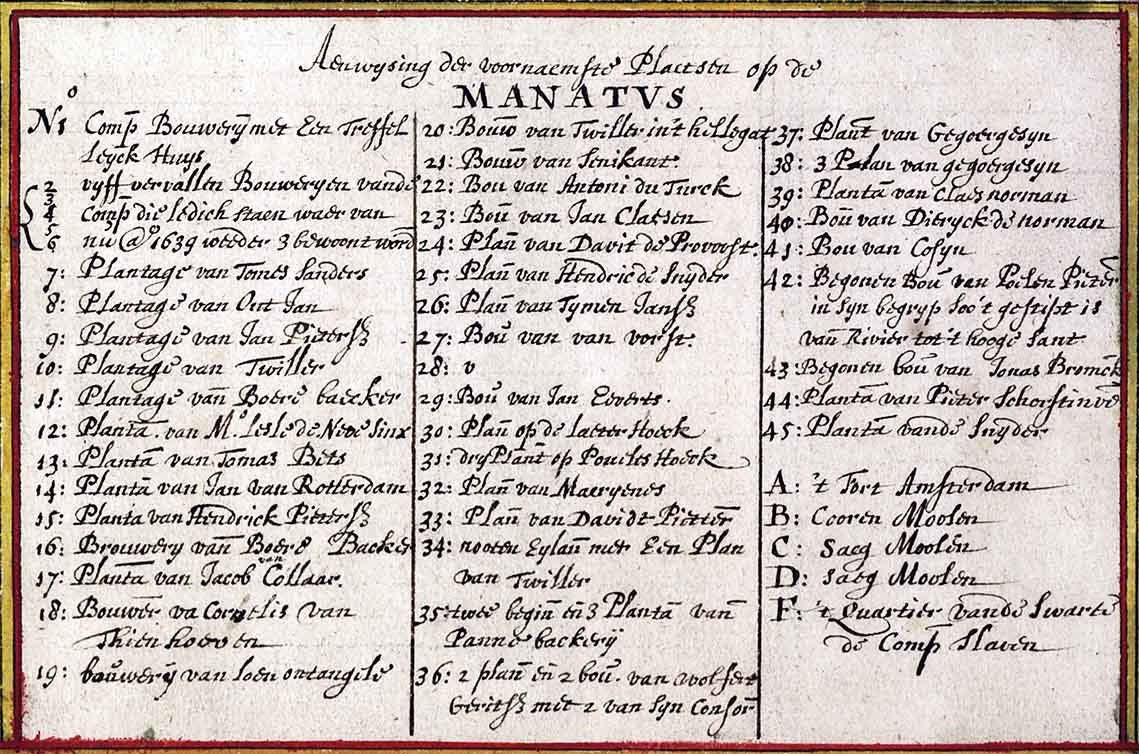 Aenwysing der voornaemste Plaetsen op de
MANATVS
No 1 Comp Bouwerij met Een Treffel
leyck Huys
2 vyff vervallen Bouweryen vande
3
4 Comp die ledich staen waer van
5
6 nu Ao 1639 weeder 3 bewoont word
7: Plantage van Tomes Sanders
8: Plantage van Out Jan
9: Plantage van Jan Pietersz
10: Plantage van Twiller
11: Plantage van Boere baecker
12: Planta. van Mo. Lesle de Neve Sinx
13: Planta van Tomas Bets
14: Planta van Jan van Rotterdam
15: Planta van Hendrick Pietersz
16: Brouwery van Boere Backer
17: Planta van Jacob van Collaar.
18: Bouwer va Cornelis van
Thienhoeven
19: bouwerij van Loen ontangele
20: Bouw van Twiller in't hellegat
21: Bouw van Senikant:
22: Bou van Antoni du Turck
23: Bou van Jan Claesen
24: Plan van Davit de Provoost.
25: Plan van Hendric de Snyder
26: Plan van Tymen Jansz
27: Bou van van vorst.
28: v
29: Bou van Jan Eeverts.
30: Plan op de Laeter Hoeck
31: dry Plant op Poueles Hoeck
32: Plan van Maeryenes
33: Plan van Davidt Pietter
34: nooten Eylan met Een Plan
van Twiller
35: twee begin en 3 Planta van
Panne backerij
36: 2 plan en 2 bou. van Wolfert
Geritsz met 2 van Syn Consor
37: Plant van Gegoergesyn
38: 3 Plan van gegoergesyn
39: Planta van Claes norman
40: Bou van Dieryck de norman
41: Bou van Cosyn
42: Begonen Bou van Poelen Pieter
in Syn begryp Soo't gestipt is
van Rivier tot 't hooge Lant
43: Begonen bou van Jonas Bromck
44: Planta van Pieter Schorstinve
45: Planta vande Snyder
A: 't Fort Amsterdam
B: Cooren Moolen
C: Saeg Moolen
D: Saeg Moolen
F: 't Quartier vande Swarte
de Comp Slaven